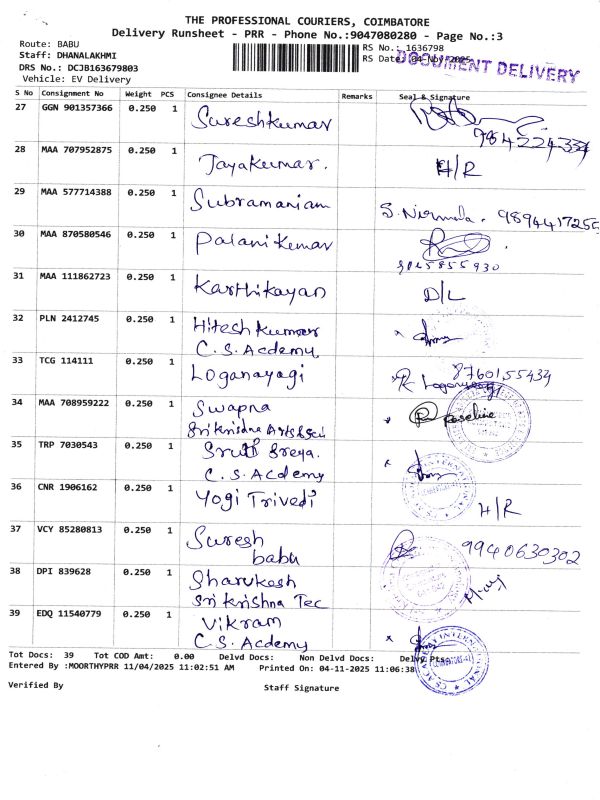 THE PROFESSIONAL COURIERS, COIMBATORE
Delivery Runsheet - PRR - Phone No.:9047080280 - Page No.:3
Route: BABU
Staff: DHANALAKHMI
DRS No.: DCJB163679803
Vehicle: EV Delivery
RS No.: 1636798
RS Date: 04-Nov-2025
DOCUMENT DELIVERY
S No Consignment No Weight PCS Consignee Details Remarks Seal & Signature
27 GGN 901357366 0.250 1 Sureshkumar
28 MAA 707952875 0.250 1 Jayakumar. H/R
29 MAA 577714388 0.250 1 Subramaniam S. Nirmala.
30 MAA 870580546 0.250 1 Palanikumar
31 MAA 111862723 0.250 1 Karthikayan D/L
32 PLN 2412745 0.250 1 Hitesh kumar
C.S. Acdemy
33 TCG 114111 0.250 1 Loganayagi 8760155434
34 MAA 708959222 0.250 1 Swapna
Sri Krishna Arts & Sci
35 TRP 7030543 0.250 1 Sruti Sreya.
C.S. Acdemy
36 CNR 1906162 0.250 1 Yogi Trivedi H/R
37 VCY 85280813 0.250 1 Suresh babu 9940630302
38 DPI 839628 0.250 1 Sharukesh
Sri Krishna Tec
39 EDQ 11540779 0.250 1 Vikram
C.S. Acdemy
Tot Docs: 39 Tot COD Amt: 0.00 Delvd Docs: Non Delvd Docs: Delvy Pts:
Entered By :MOORTHYPRR 11/04/2025 11:02:51 AM Printed On: 04-11-2025 11:06:38
Verified By Staff Signature